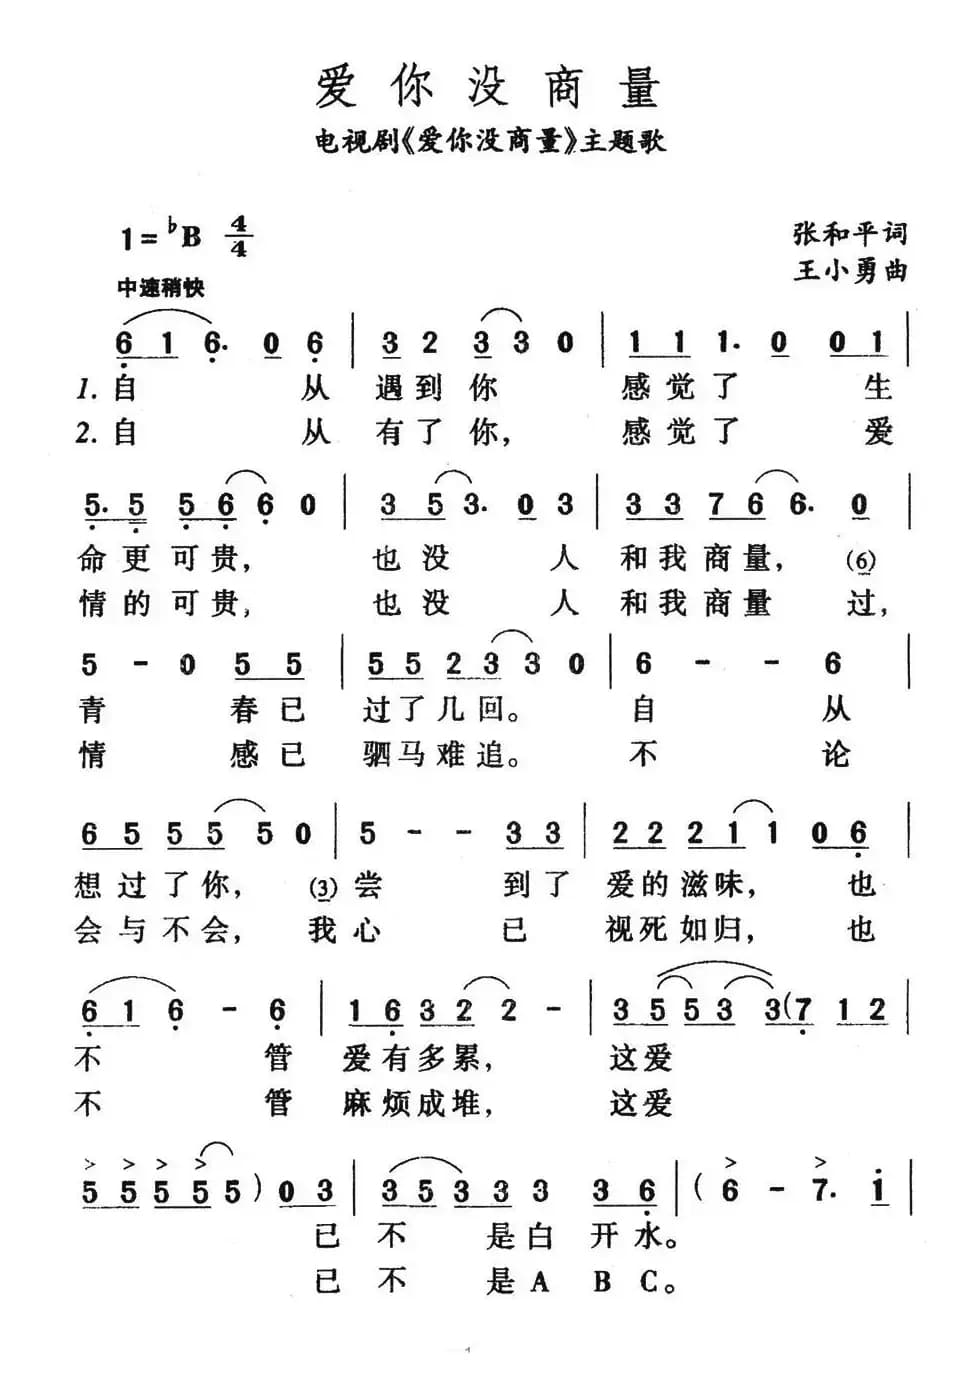 爱你没商量
电视剧《爱你没商量》主题歌
1=♭B 4/4
张和平词
王小勇曲
中速稍快
6 1 6· 0 6 | 3 2 3 3 0 | 1 1 1· 0 0 1 |
1.自 从 遇到你 感觉了 生
2.自 从 有了你, 感觉了 爱
5· 5 5 6 6 0 | 3 5 3· 0 3 | 3 3 7 6 6· 0 |
命更可贵, 也没 人 和我商量, (6)
情的可贵, 也没 人 和我商量 过,
5 - 0 5 5 | 5 5 2 3 3 0 | 6 - - 6
青 春已 过了几回。 自 从
情 感已 驷马难追。 不 论
6 5 5 5 5 0 | 5 - - 3 3 | 2 2 2 1 1 0 6 |
想过了你, (3)尝 到了 爱的滋味, 也
会与不会, 我心 已 视死如归, 也
6 1 6 - 6 | 1 6 3 2 2 - | 3 5 5 3 3(7 1 2 |
不 管 爱有多累, 这爱
不 管 麻烦成堆, 这爱
> > > >
5 5 5 5 5) 0 3 | 3 5 3 3 3 3 6 | (6 - 7· 1 |
已 不 是白开水。
已 不 是A B C。